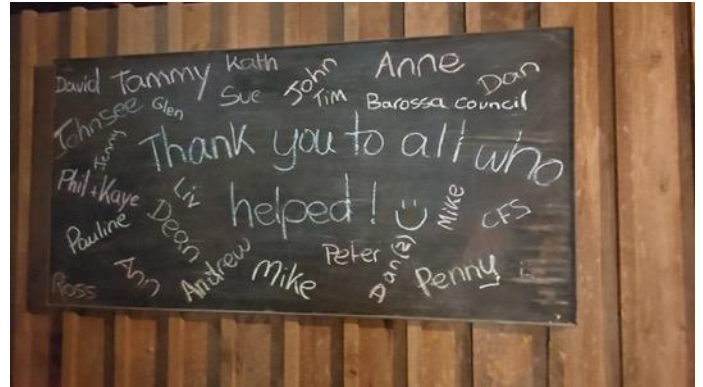 David Tammy Kath John Anne Dan
Sue Tim Barossa council
Johnsee Glen
Jenny
Thank you to all who
helped!
Phil + Kaye Liv Mike CFS
Pauline Dean
Ross Ann Andrew Mike Peter Dan (2) Penny